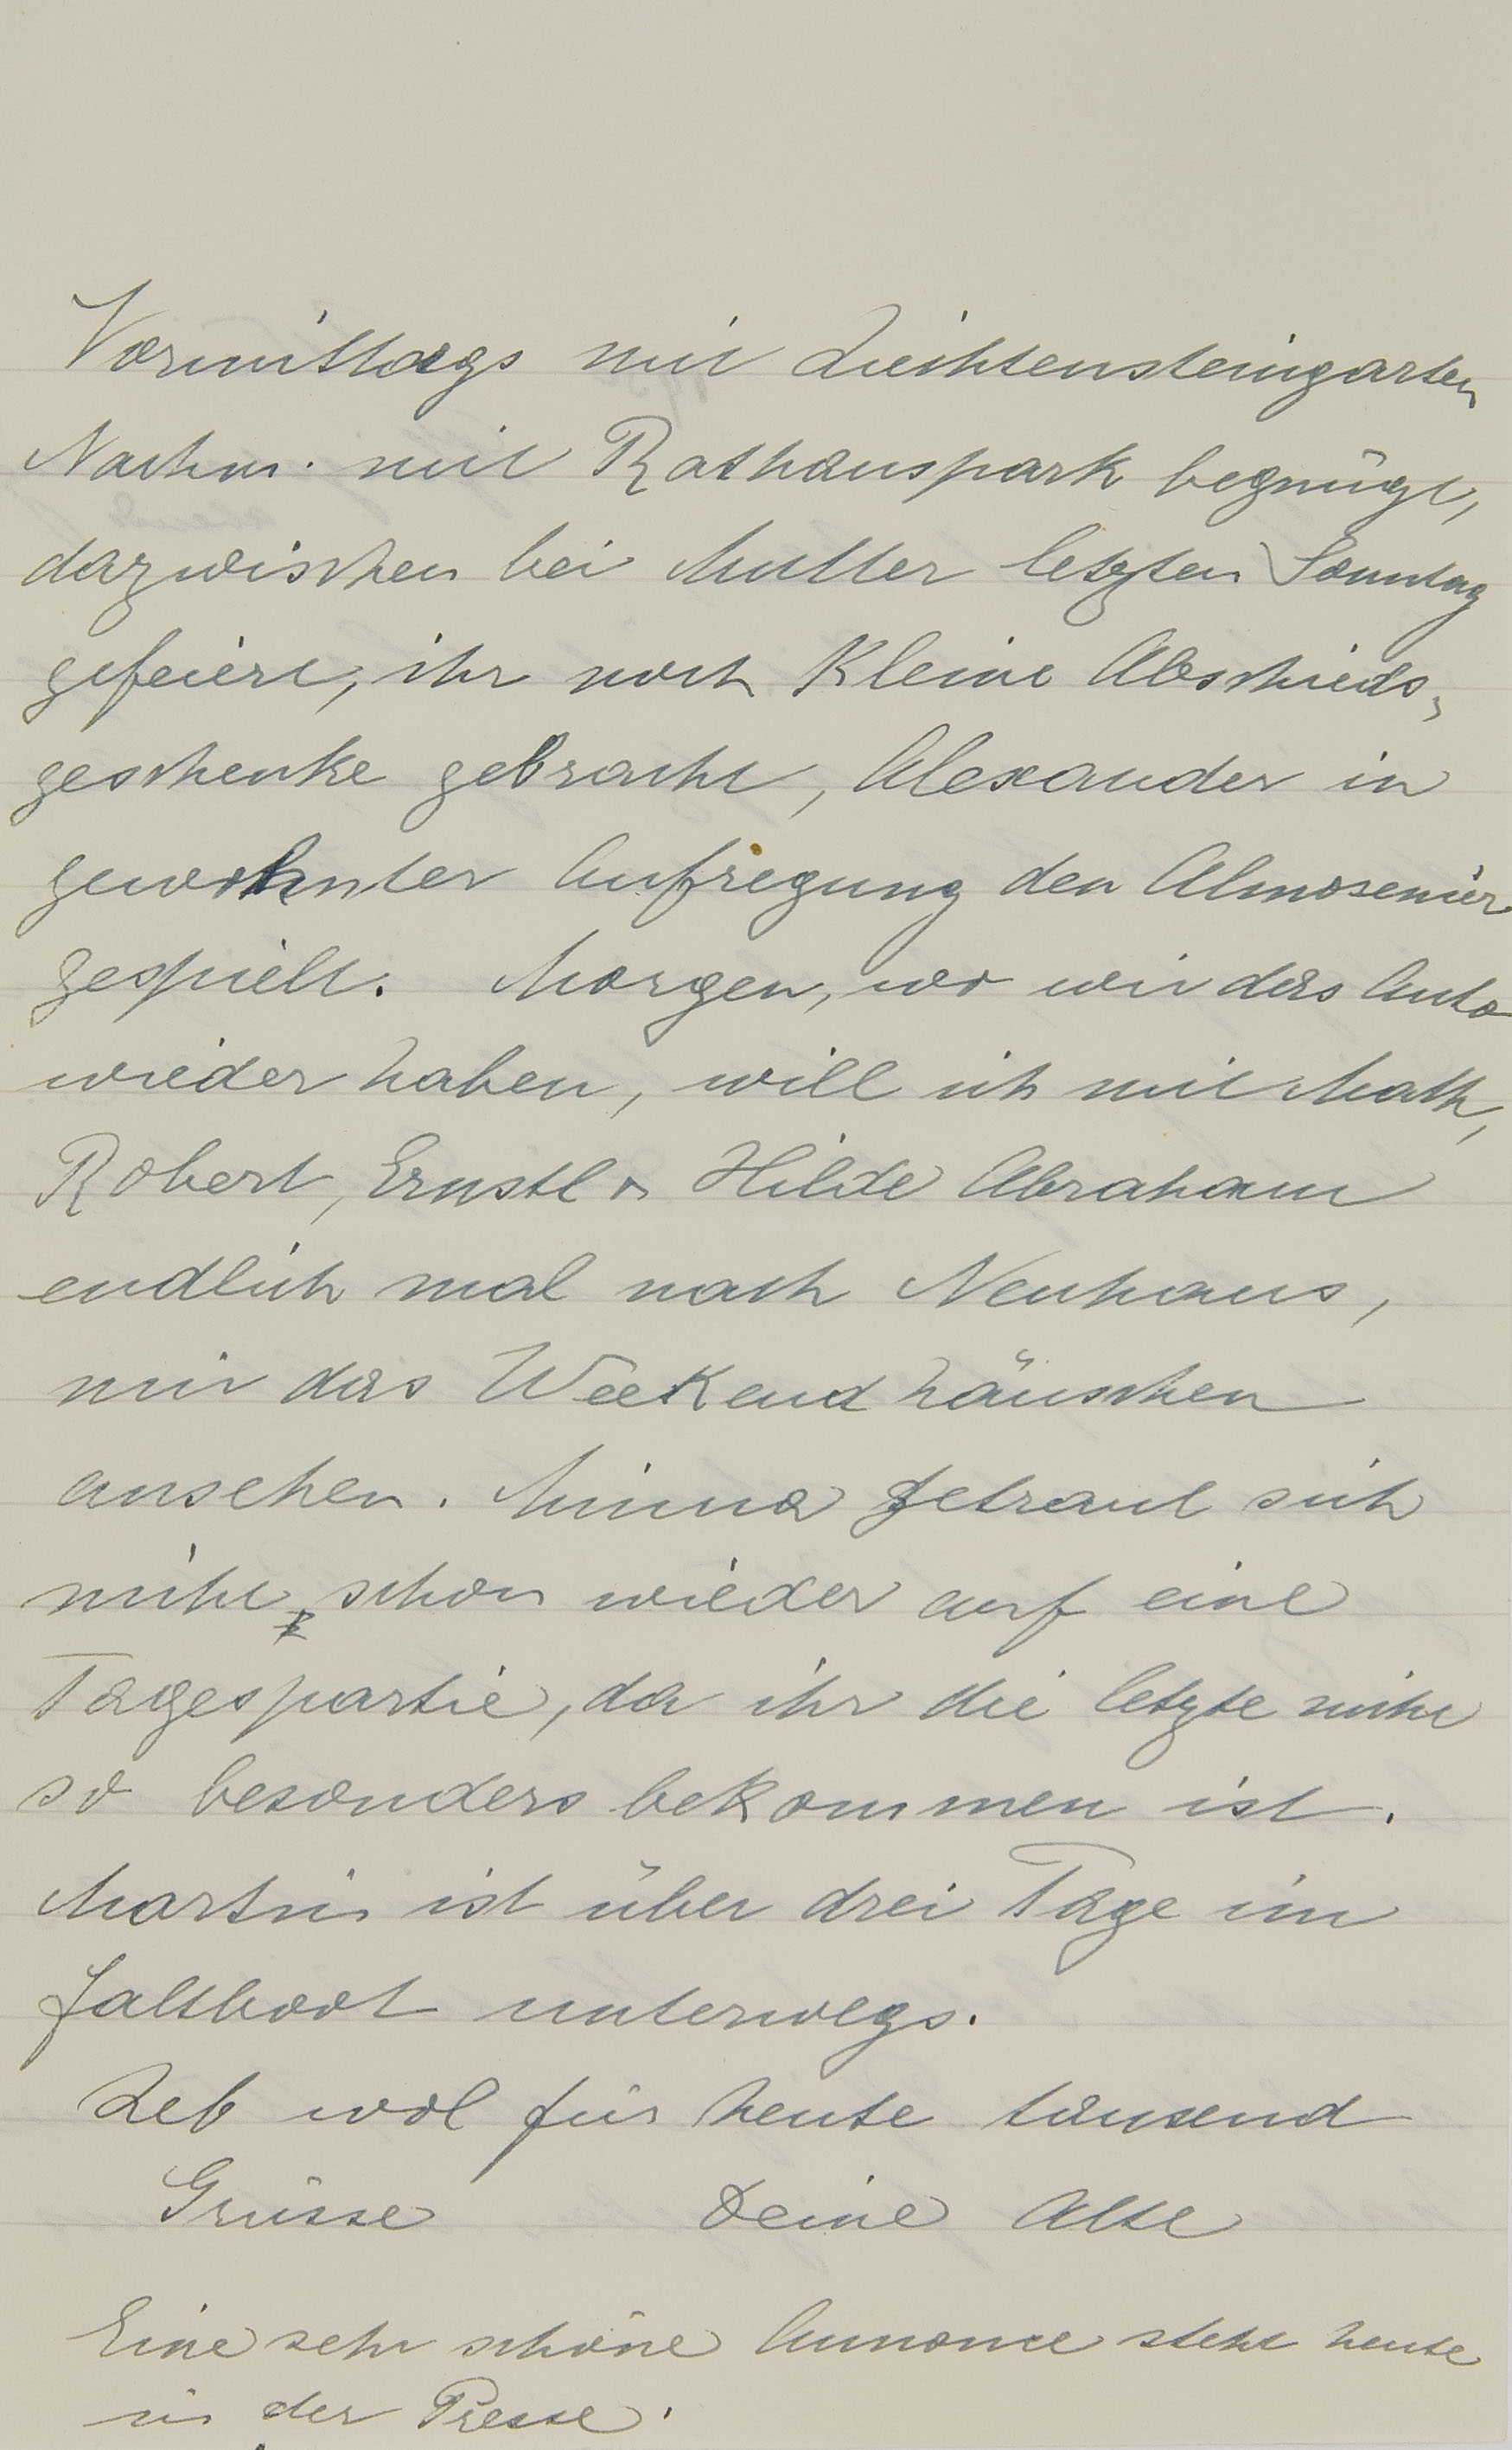 Vormittags mit Liechtensteingarten
Nachm. mit Rathauspark begnügt,
dazwischen bei Mutter letzten Sonntag
gefeiert, ihr noch kleine Abschieds,
geschenke gebracht, Alexander in
gewohnter Aufregung den Almosenier
gespielt. Morgen, wo wir das Auto
wieder haben, will ich mit Math,
Robert, Ernstl u Hilde Abraham
endlich mal nach Neuhaus,
mir das Weekendhäuschen
ansehen. Minna getraut sich
nicht schon wieder auf eine
Tagespartie, da ihr die letzte nicht
so besonders bekommen ist.
Martin ist über drei Tage im
Faltboot unterwegs.
Leb wol für heute tausend
Grüsse Deine Alte
Eine sehr schöne Annonce steht heute
in der Presse.